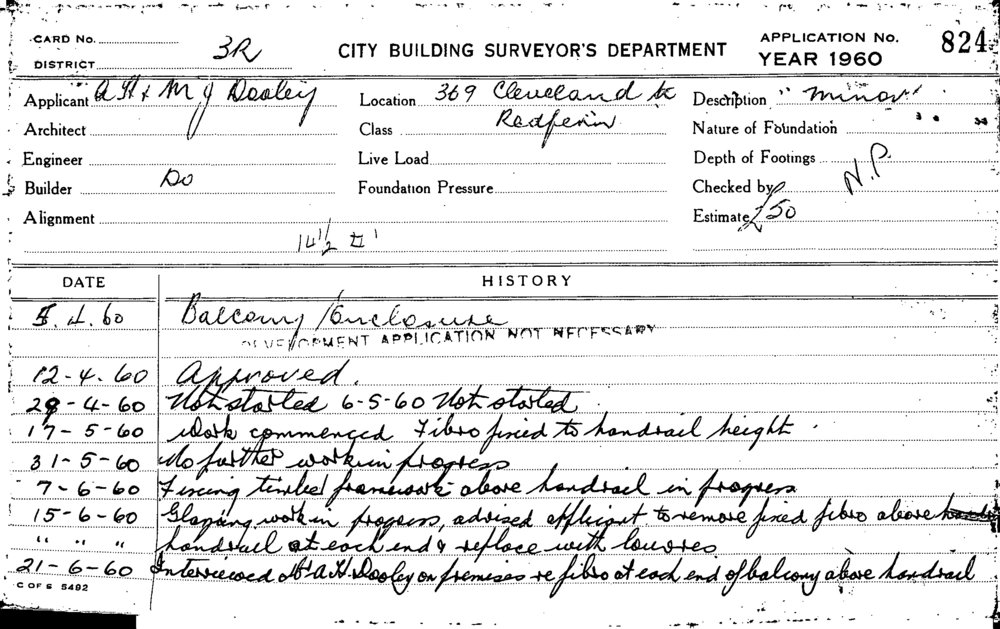 CARD No. 3R CITY BUILDING SURVEYOR'S DEPARTMENT APPLICATION No. 824
DISTRICT YEAR 1960
Applicant A H & M J Dooley Location 369 Cleveland St Description " Minor "
Architect Class Redfern Nature of Foundation " " "
Engineer Live Load Depth of Footings
Builder Do Foundation Pressure Checked by N.P.
Alignment Estimate £50
14½ □'
DATE HISTORY
5.4.60 Balcony Enclosure
DEVELOPMENT APPLICATION NOT NECESSARY
12-4-60 Approved.
29-4-60 Not started 6-5-60 Not started
17-5-60 Work commenced Fibro fixed to handrail height.
31-5-60 No further work in progress
7-6-60 Fixing timber framework above handrail in progress
15-6-60 Glazing work in progress, advised applicant to remove fixed fibro above
" " " handrail at each end & replace with louvres
21-6-60 Interviewed Mr A H Dooley on premises re fibro at each end of balcony above handrail
C OF S 5492